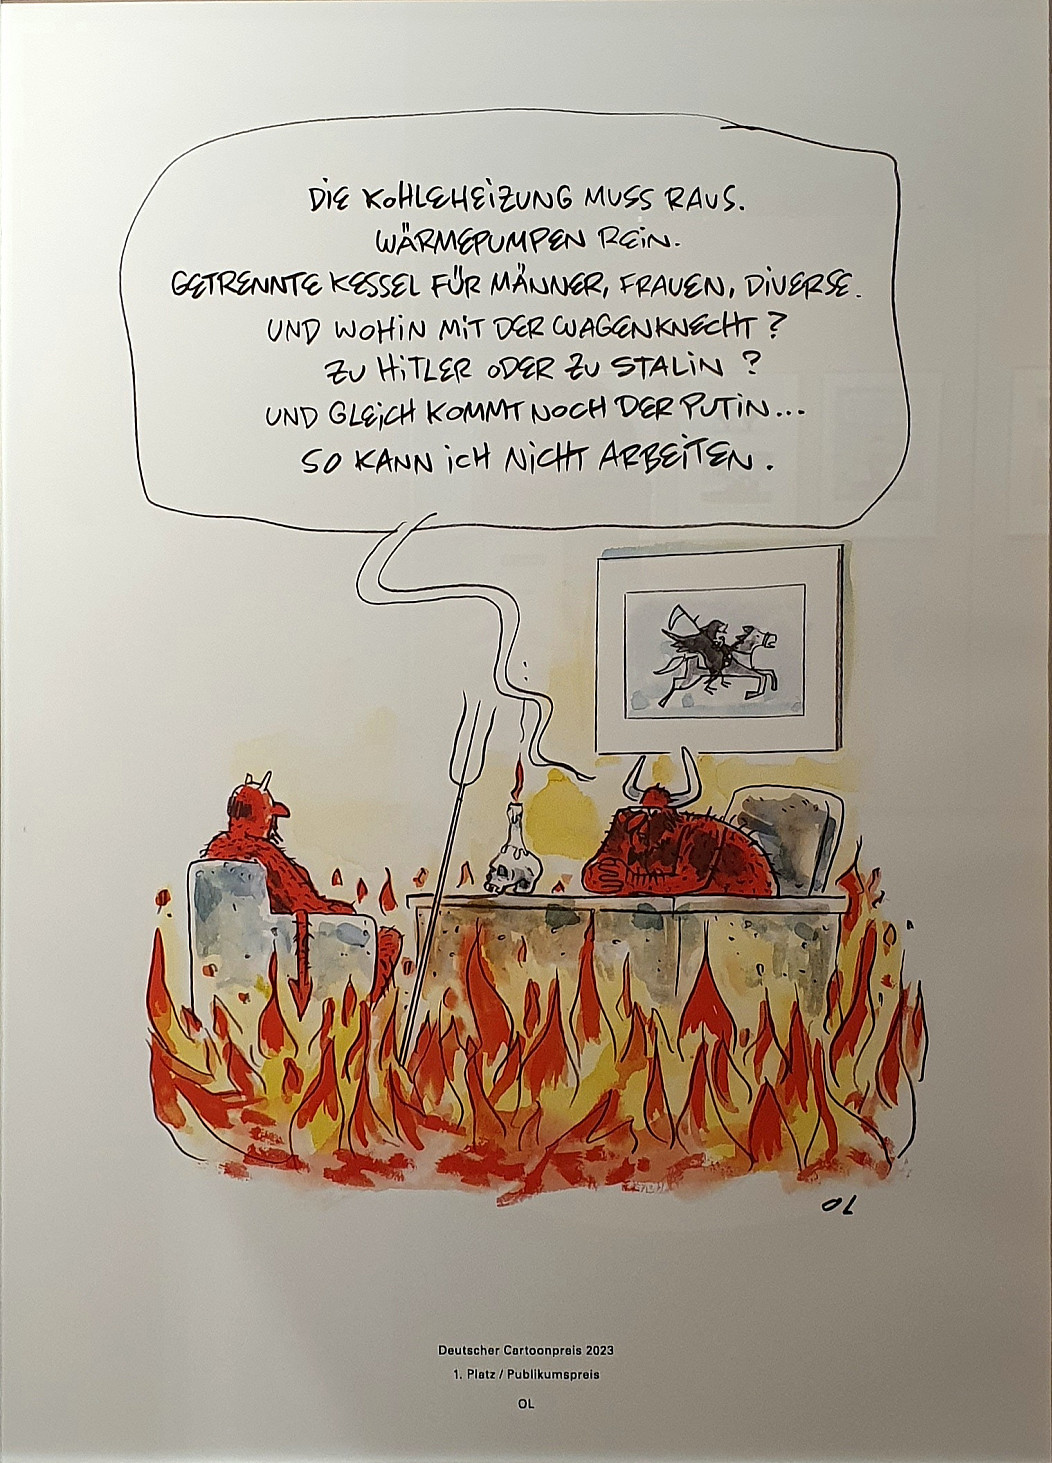 DIE KOHLEHEIZUNG MUSS RAUS.
WÄRMEPUMPEN REIN.
GETRENNTE KESSEL FÜR MÄNNER, FRAUEN, DIVERSE.
UND WOHIN MIT DER WAGENKNECHT?
ZU HITLER ODER ZU STALIN?
UND GLEICH KOMMT NOCH DER PUTIN...
SO KANN ICH NICHT ARBEITEN.
OL
Deutscher Cartoonpreis 2023
1. Platz / Publikumspreis
OL